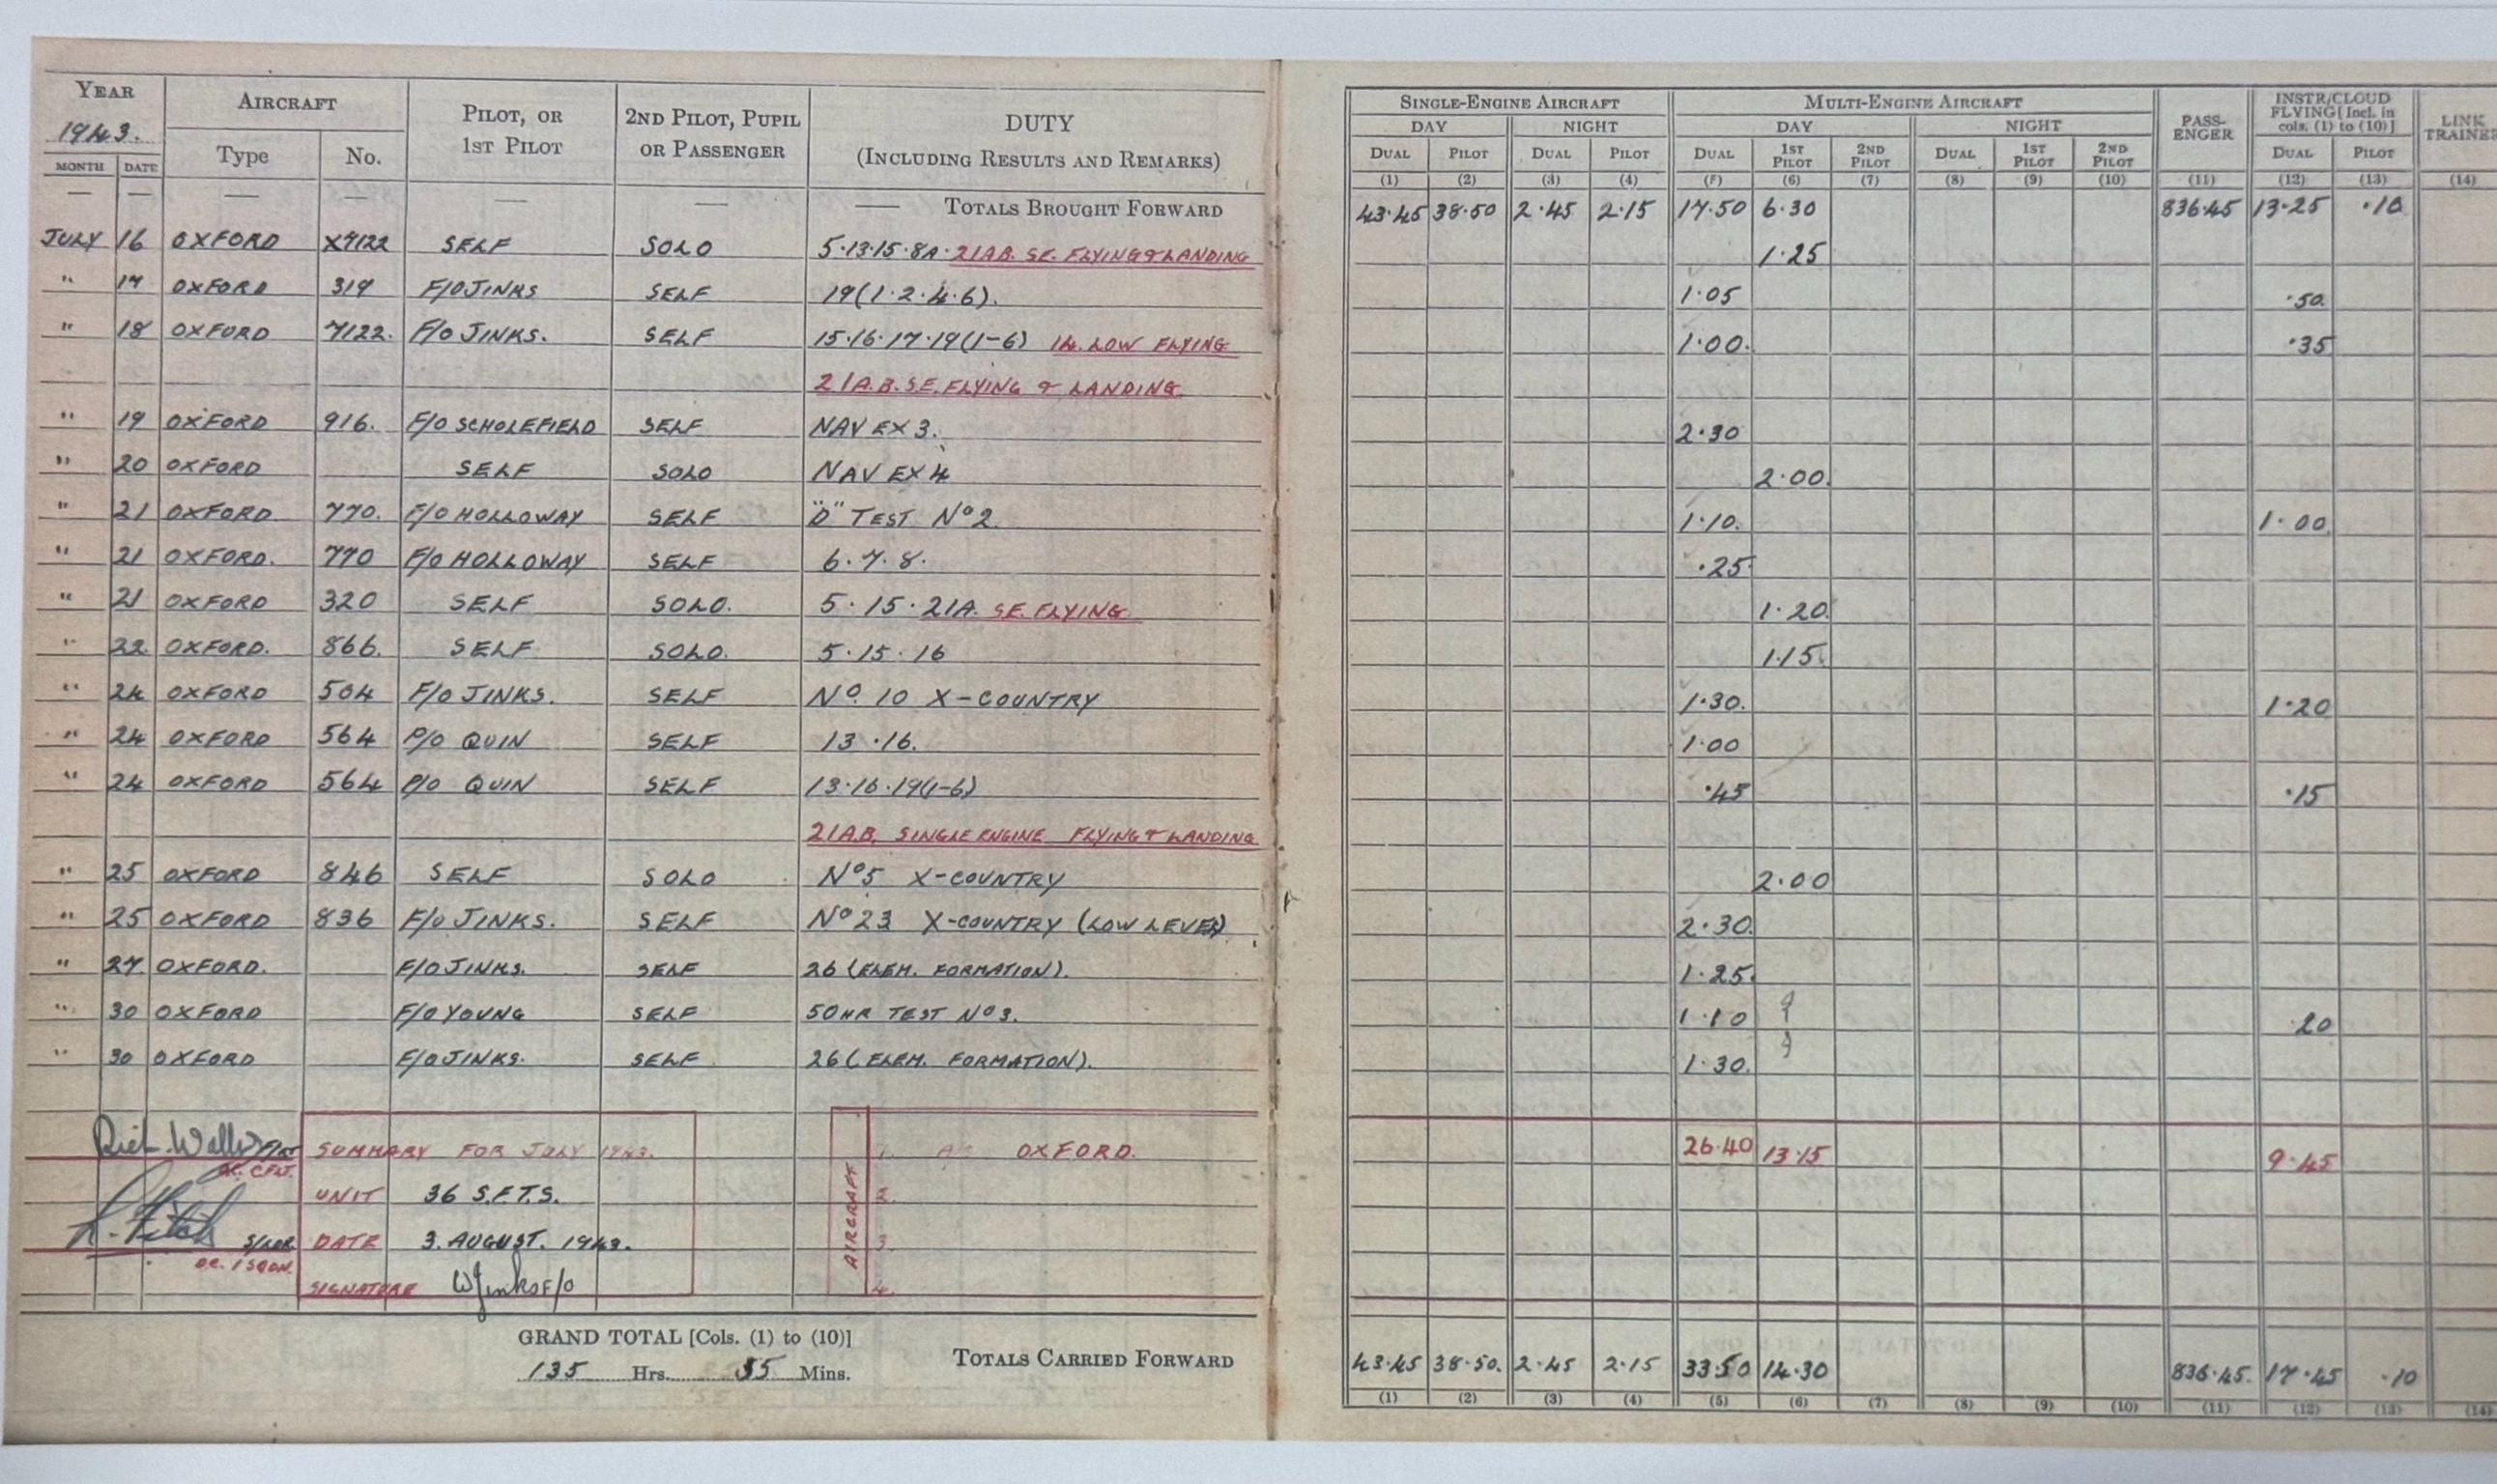 YEAR AIRCRAFT PILOT, OR 1ST PILOT 2ND PILOT, PUPIL OR PASSENGER DUTY (INCLUDING RESULTS AND REMARKS) SINGLE-ENGINE AIRCRAFT MULTI-ENGINE AIRCRAFT PASS-ENGER INSTR/CLOUD FLYING [Incl. in cols. (1) to (10)] LINK TRAINER
1943. DAY NIGHT DAY NIGHT
MONTH DATE Type No. DUAL PILOT DUAL PILOT DUAL 1ST PILOT 2ND PILOT DUAL 1ST PILOT 2ND PILOT DUAL PILOT
(1) (2) (3) (4) (5) (6) (7) (8) (9) (10) (11) (12) (13) (14)
— — — — — — — TOTALS BROUGHT FORWARD 43·45 38·50 2·45 2·15 17·50 6·30 836·45 13·25 ·10
JULY 16 OXFORD X7122 SELF SOLO 5·13·15·8A·21AB. SE. FLYING & LANDING 1·25
" 17 OXFORD 319 F/O JINKS SELF 19(1·2·4·6). 1·05 ·50
" 18 OXFORD 7122. F/O JINKS. SELF 15·16·17·19(1-6) 14. LOW FLYING 1·00. ·35
21A.B. S.E. FLYING & LANDING
" 19 OXFORD 916. F/O SCHOLEFIELD SELF NAV EX 3. 2·30
" 20 OXFORD SELF SOLO NAV EX 4 2·00.
" 21 OXFORD 770. F/O HOLLOWAY SELF "D" TEST No 2. 1·10. 1·00
" 21 OXFORD. 770 F/O HOLLOWAY SELF 6·7·8. ·25
" 21 OXFORD 320 SELF SOLO. 5·15·21A. SE. FLYING 1·20
" 22 OXFORD. 866. SELF SOLO. 5·15·16 1·15.
" 24 OXFORD 504 F/O JINKS. SELF No. 10 X-COUNTRY 1·30. 1·20
" 24 OXFORD 564 P/O QUIN SELF 13·16. 1·00
" 24 OXFORD 564 P/O QUIN SELF 13·16·19(1-6) ·45 ·15
21A.B. SINGLE ENGINE FLYING & LANDING
" 25 OXFORD 846 SELF SOLO No 5 X-COUNTRY 2·00
" 25 OXFORD 836 F/O JINKS. SELF No 23 X-COUNTRY (LOW LEVEL) 2·30.
" 27 OXFORD. F/O JINKS. SELF 26 (ELEM. FORMATION). 1·25.
" 30 OXFORD F/O YOUNG SELF 50HR TEST No 3. 1·10 ·20
" 30 OXFORD F/O JINKS. SELF 26 (ELEM. FORMATION). 1·30.
F/LT SUMMARY FOR JULY 1943. 1. A/C OXFORD. 26·40 13·15 9·45
O.C. C FLT.
UNIT 36 S.F.T.S. AIRCRAFT 2.
S/LDR DATE 3. AUGUST. 1943. 3.
O.C. 1 SQDN.
SIGNATURE WJinks F/O 4.
GRAND TOTAL [Cols. (1) to (10)]
135 Hrs. 55 Mins. TOTALS CARRIED FORWARD 43·45 38·50. 2·45 2·15 33·50 14·30 836·45. 17·45 ·10
(1) (2) (3) (4) (5) (6) (7) (8) (9) (10) (11) (12) (13) (14)